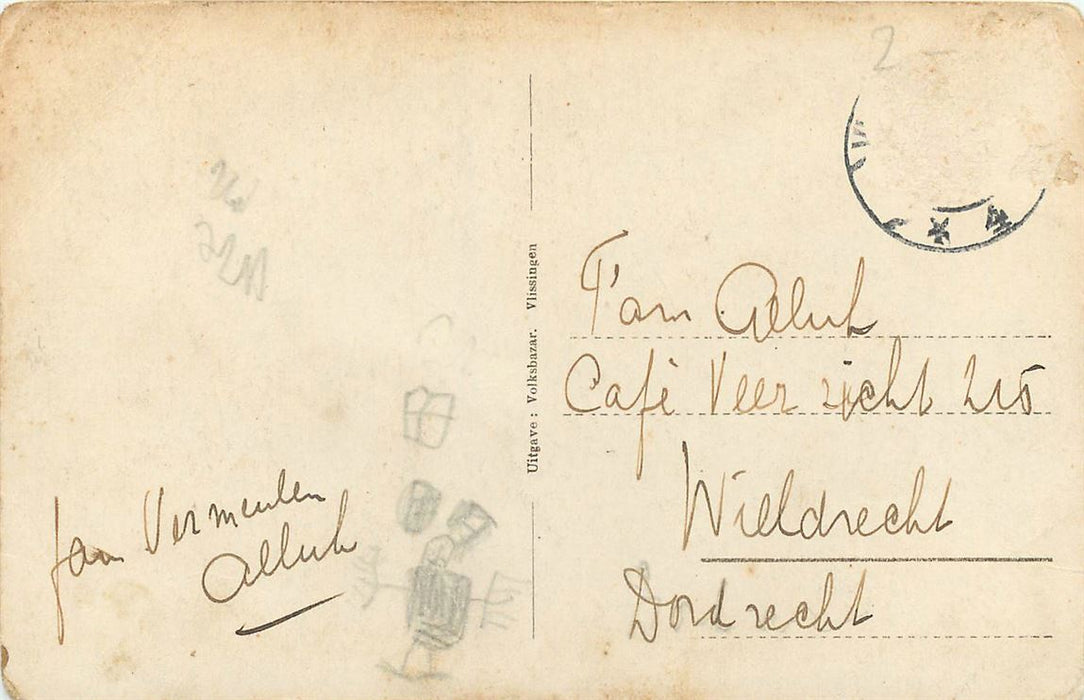 2 -
Fam Alluh
Café Veer zicht 215
Wieldrecht
Dordrecht
Uitgave: Volksbazar. Vlissingen
fam Vermeulen
Alluh